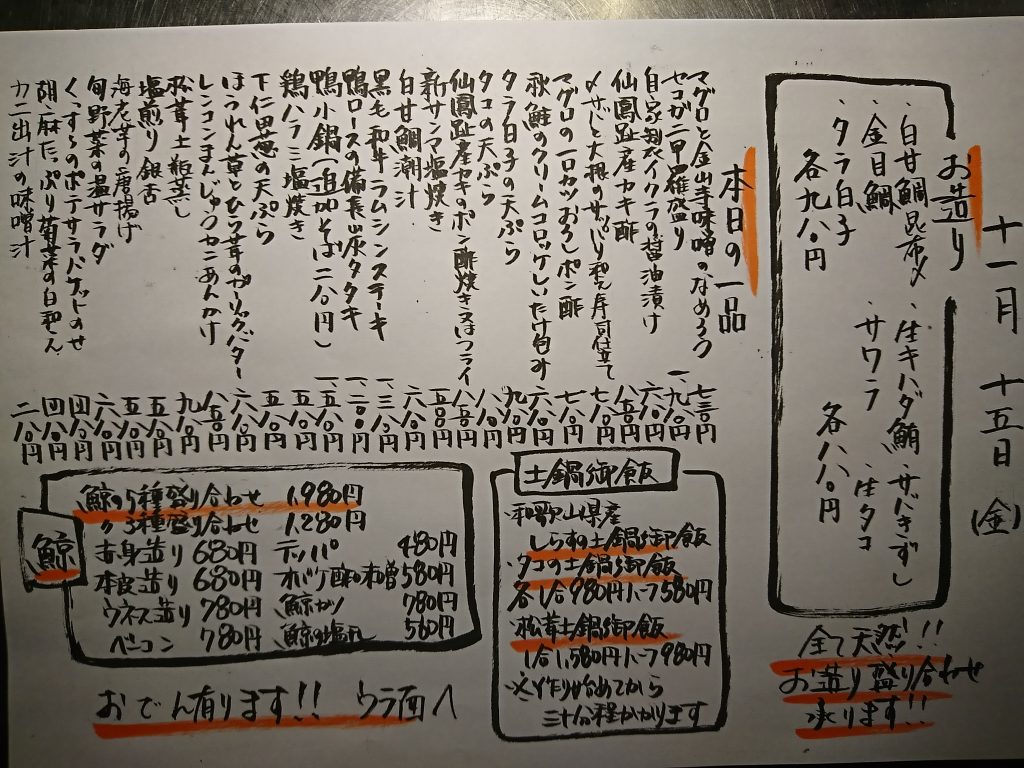 十一月 十五日 (金)
お造り
・白甘鯛昆布〆 ・生キハダ鮪 ・サバきずし
・金目鯛 サワラ ・生タコ
・タラ白子 各八八〇円
各九八〇円
全て天然!!
お造り盛り合わせ
承ります!!
本日の一品
マグロと金山寺味噌のなめろう 七三〇円
セコガニ甲羅盛り 一、九八〇円
自家製イクラの醤油漬け 六八〇円
仙鳳趾産カキ酢 八五〇円
〆サバと大根のサッパリ和え寿司仕立て 七八〇円
マグロの一口カツおろしポン酢 七八〇円
秋鮭のクリームコロッケしいたけ包み 六八〇円
タラ白子の天ぷら 九八〇円
タコの天ぷら 八八〇円
仙鳳趾産カキのポン酢焼き又はフライ 八五〇円
新サンマ塩焼き 五八〇円
白甘鯛潮汁 六八〇円
黒毛和牛ラムシンステーキ 一、三八〇円
鴨ロースの備長炭タタキ 一、二八〇円
鴨小鍋(追加そば二八〇円) 一、五八〇円
鶏ハラミ塩焼き 五八〇円
下仁田葱の天ぷら 五八〇円
ほうれん草とひら茸のガーリックバター 六八〇円
レンコンまんじゅうカニあんかけ 八五〇円
松茸土瓶蒸し 九八〇円
塩煎り銀杏 五八〇円
海老芋の唐揚げ 五八〇円
旬野菜の温サラダ 六八〇円
くっすらのポテサラバケットのせ 四八〇円
胡麻たっぷり菊菜の白和え 四八〇円
カニ出汁の味噌汁 二八〇円
土鍋御飯
・和歌山県産
しらすの土鍋御飯
・タコの土鍋御飯
各1合980円ハーフ580円
・松茸土鍋御飯
1合1,580円ハーフ980円
※作り始めてから
三十分程かかります
鯨
鯨の5種盛り合わせ 1,980円
〃3種盛り合わせ 1,280円
赤身造り 680円 テッパ 480円
本皮造り 680円 オバケ酢の味噌 580円
ウネス造り 780円 鯨カツ 780円
ベーコン 780円 鯨の塩 580円
おでん有ります!! ウラ面へ